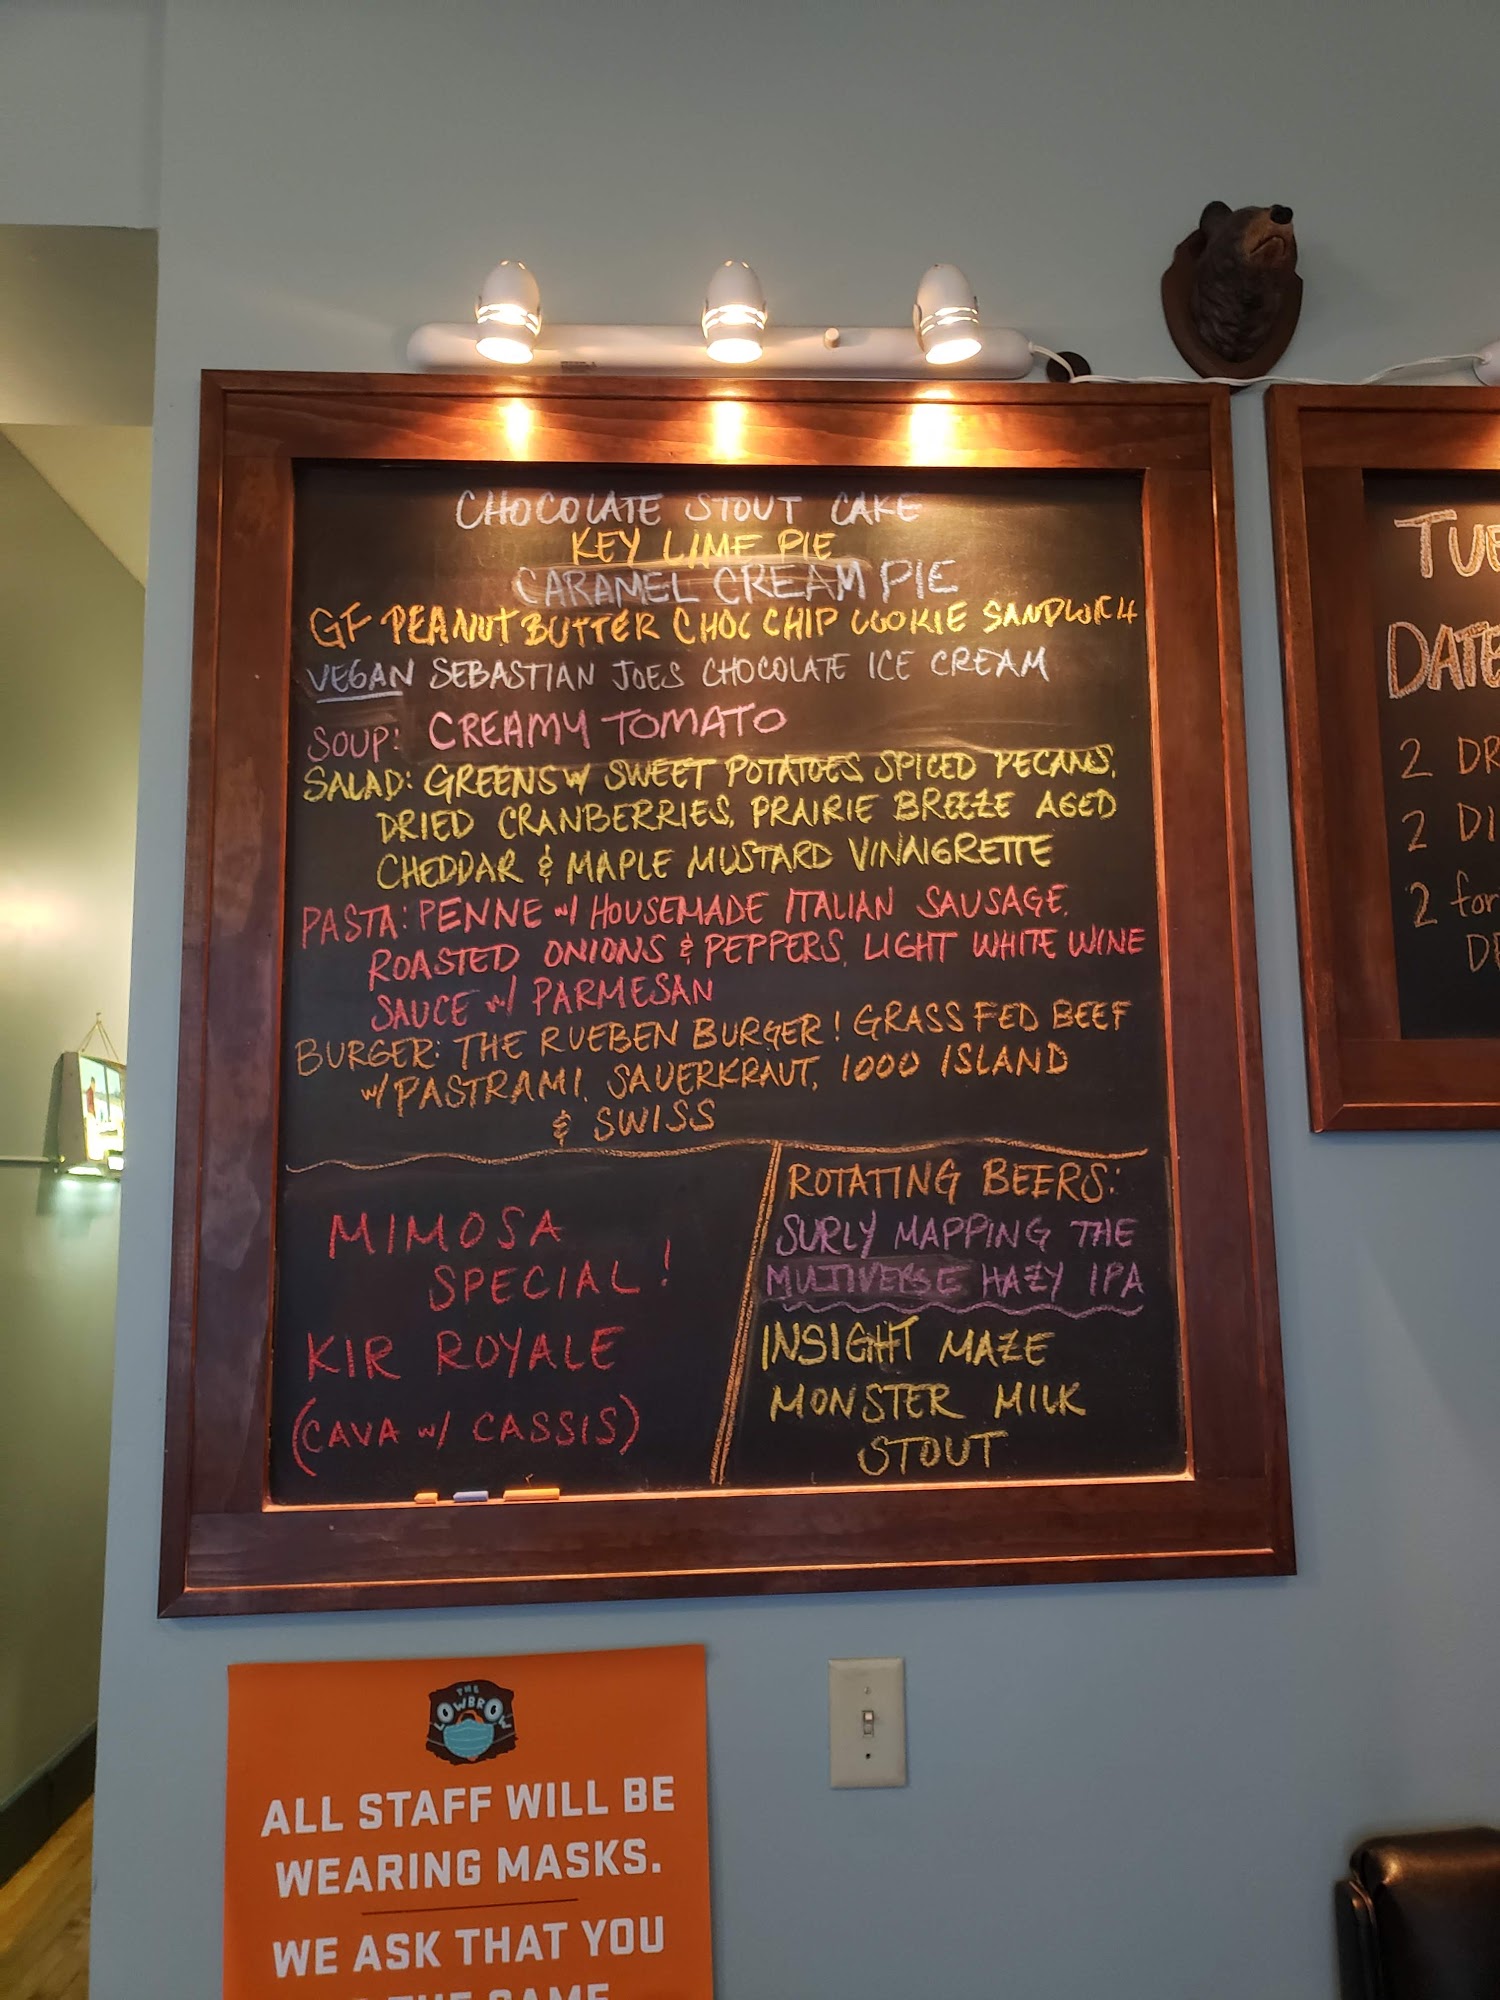 CHOCOLATE STOUT CAKE
KEY LIME PIE
CARAMEL CREAM PIE
GF PEANUT BUTTER CHOC CHIP COOKIE SANDWICH
VEGAN SEBASTIAN JOES CHOCOLATE ICE CREAM
SOUP: CREAMY TOMATO
SALAD: GREENS W/ SWEET POTATOES SPICED PECANS,
DRIED CRANBERRIES, PRAIRIE BREEZE AGED
CHEDDAR & MAPLE MUSTARD VINAIGRETTE
PASTA: PENNE W/ HOUSEMADE ITALIAN SAUSAGE,
ROASTED ONIONS & PEPPERS, LIGHT WHITE WINE
SAUCE W/ PARMESAN
BURGER: THE RUEBEN BURGER! GRASS FED BEEF
W/ PASTRAMI, SAUERKRAUT, 1000 ISLAND
& SWISS
MIMOSA
SPECIAL!
KIR ROYALE
(CAVA W/ CASSIS)
ROTATING BEERS:
SURLY MAPPING THE
MULTIVERSE HAZY IPA
INSIGHT MAZE
MONSTER MILK
STOUT
TUE
DATE
2 DR
2 DI
2 for
DE
THE
LOWBROW
ALL STAFF WILL BE
WEARING MASKS.
WE ASK THAT YOU
THE SAME